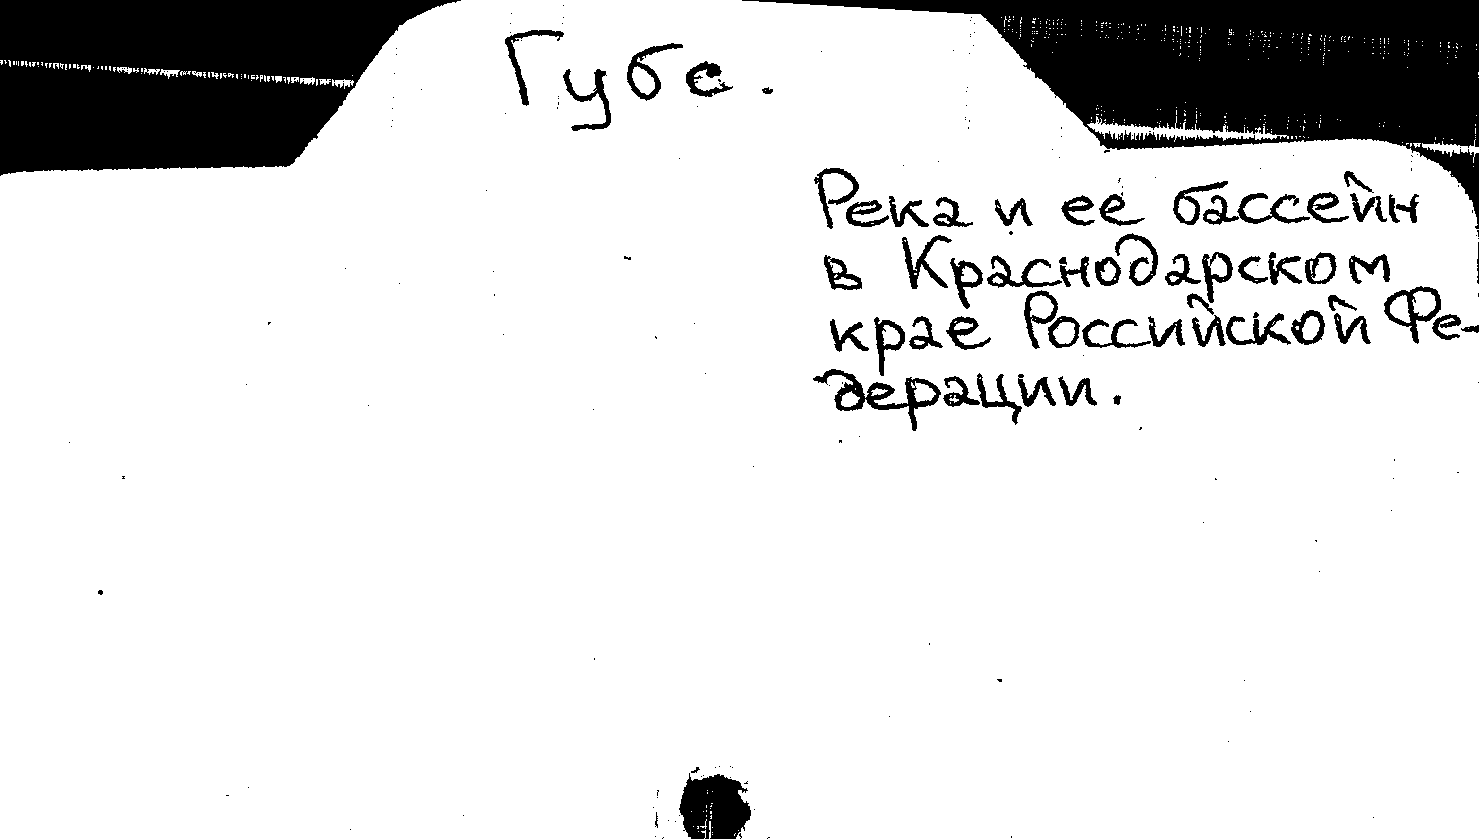 Губс.
Река и ее бассейн
в Краснодарском
крае Российской Фе-
дерации.